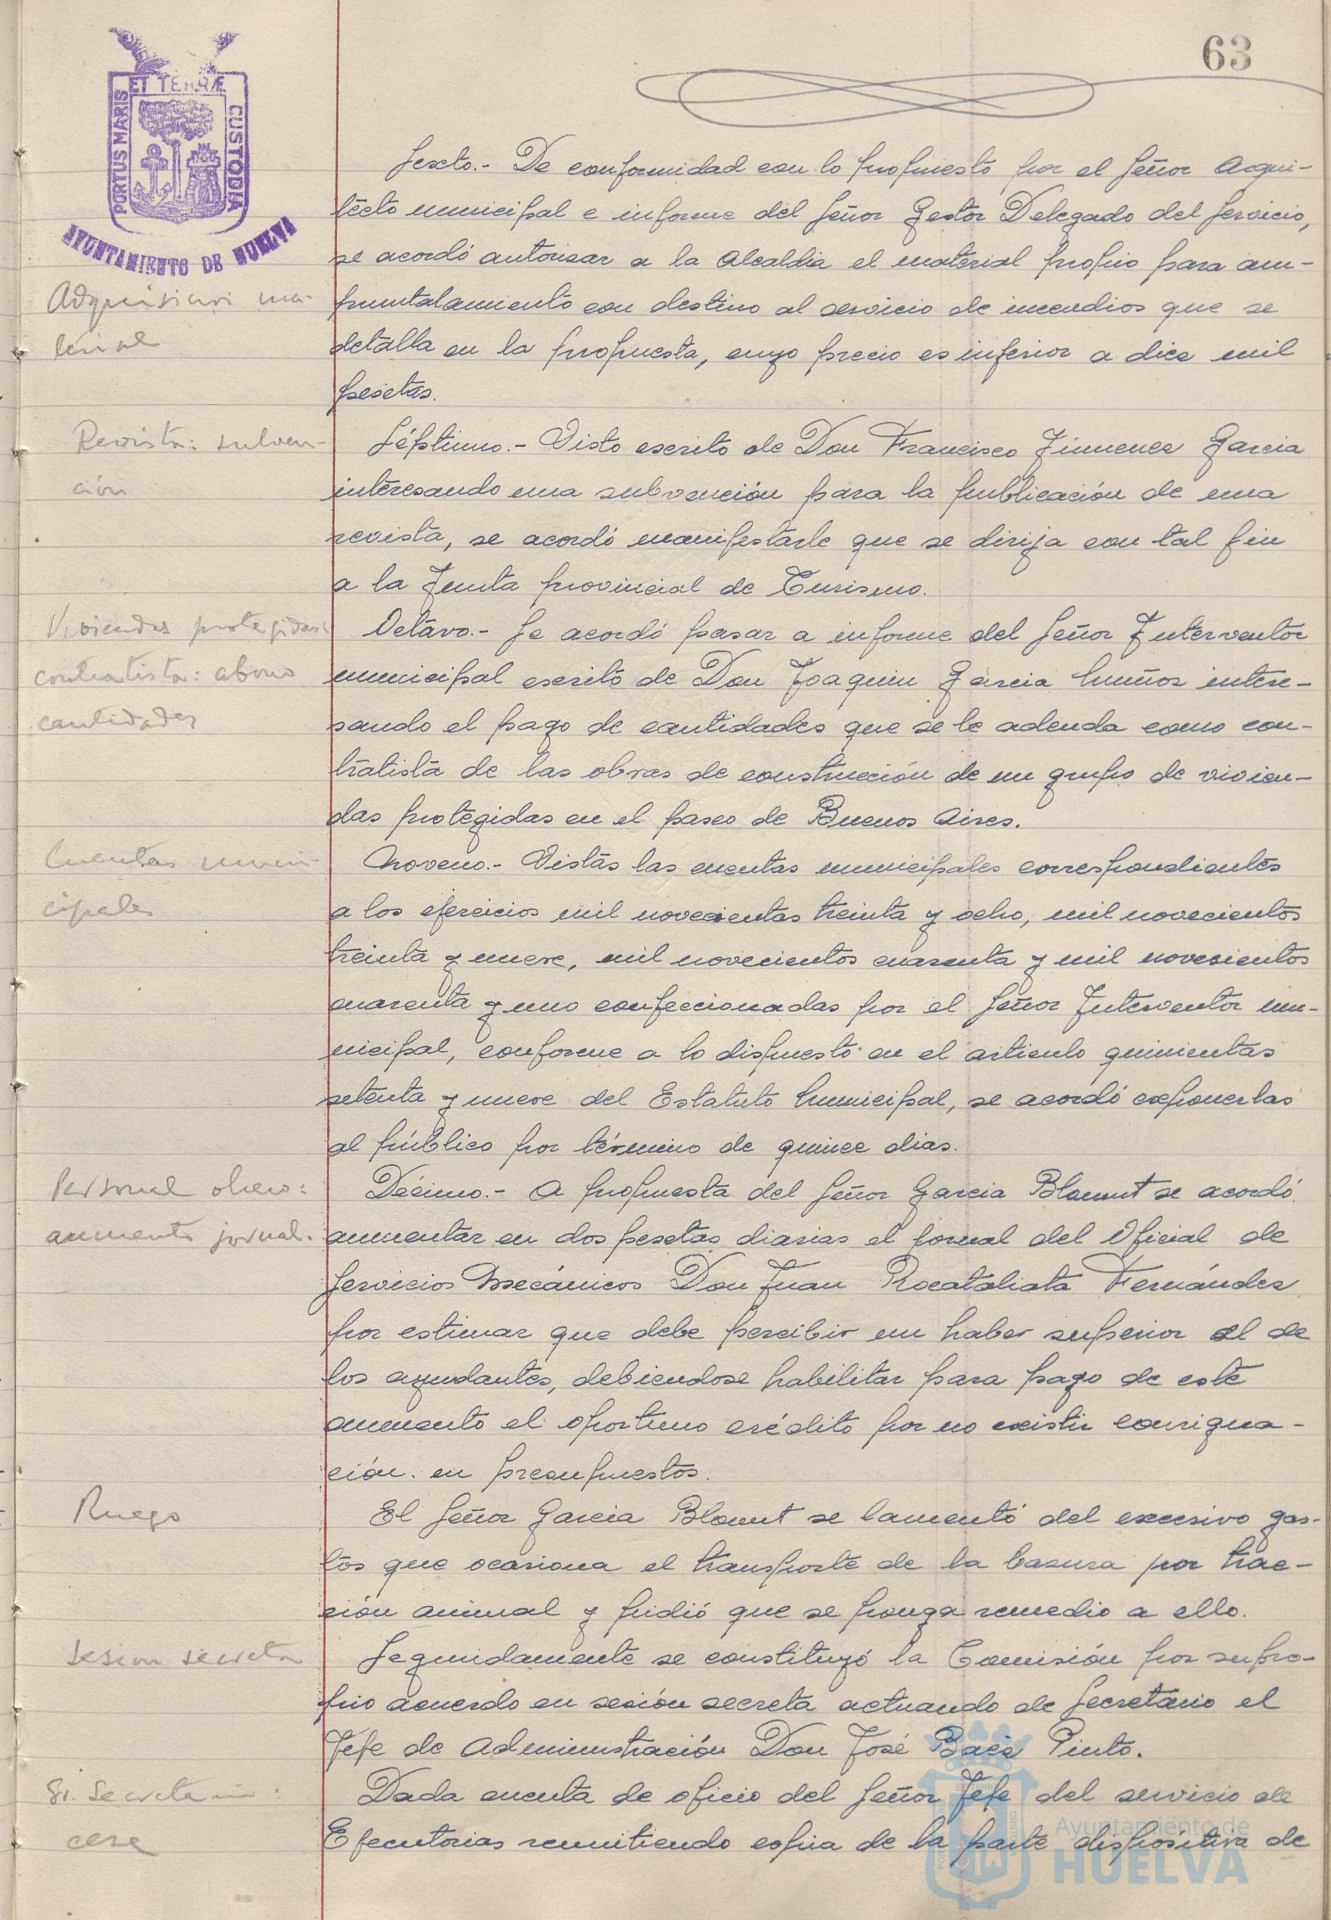 63
PORTUS MARIS ET TERRÆ CUSTODIA
AYUNTAMIENTO DE HUELVA
Sexto.- De conformidad con lo propuesto por el Señor Arqui-
tecto municipal e informe del Señor Gestor Delegado del Servicio,
se acordó autorizar a la Alcaldia el material propio para am-
Adquisicion ma-
puntalamiento con destino al servicio de incendios que se
terial
detalla en la propuesta, cuyo precio es inferior a diez mil
pesetas.
Revista: subven-
Séptimo.- Visto escrito de Don Francisco Jimenez Garcia
ción
interesando una subvención para la publicación de una
revista, se acordó manifestarle que se dirija con tal fin
a la Junta provincial de Turismo.
Viviendas protegidas:
Octavo.- Se acordó pasar a informe del Señor Interventor
contratista: abono
municipal escrito de Don Joaquin Garcia Muñoz intere-
cantidades
sando el pago de cantidades que se le adeuda como con-
tratista de las obras de construcción de un grupo de vivien-
das protegidas en el paseo de Buenos Aires.
Cuentas muni-
Noveno.- Vistas las cuentas municipales correspondientes
cipales
a los ejercicios mil novecientos treinta y ocho, mil novecientos
treinta y nueve, mil novecientos cuarenta y mil novecientos
cuarenta y uno confeccionadas por el Señor Interventor mu-
nicipal, conforme a lo dispuesto en el articulo quinientas
setenta y nueve del Estatuto Municipal, se acordó exponerlas
al público por término de quince dias.
Personal obrero:
Décimo.- A propuesta del Señor Garcia Blomut se acordó
aumento jornal.
aumentar en dos pesetas diarias el jornal del Oficial de
Servicios Mecánicos Don Juan Rocatallata Fernández
por estimar que debe percibir un haber superior al de
los ayudantes, debiendose habilitar para pago de este
aumento el oportuno crédito por no existir consigna-
ción en presupuestos.
Ruego
El Señor Garcia Blomut se lamentó del excesivo gas-
tos que ocasiona el transporte de la basura por trac-
ción animal y pidió que se ponga remedio a ello.
Sesion secreta
Seguidamente se constituyó la Comisión por su pro-
pio acuerdo en sesión secreta actuando de Secretario el
Jefe de Administración Don José Baéz Pinto.
Sr. Secretario
Dada cuenta de oficio del Señor Jefe del servicio de
cese
Ejecutorias remitiendo copia de la parte dispositiva de
Ayuntamiento de
HUELVA